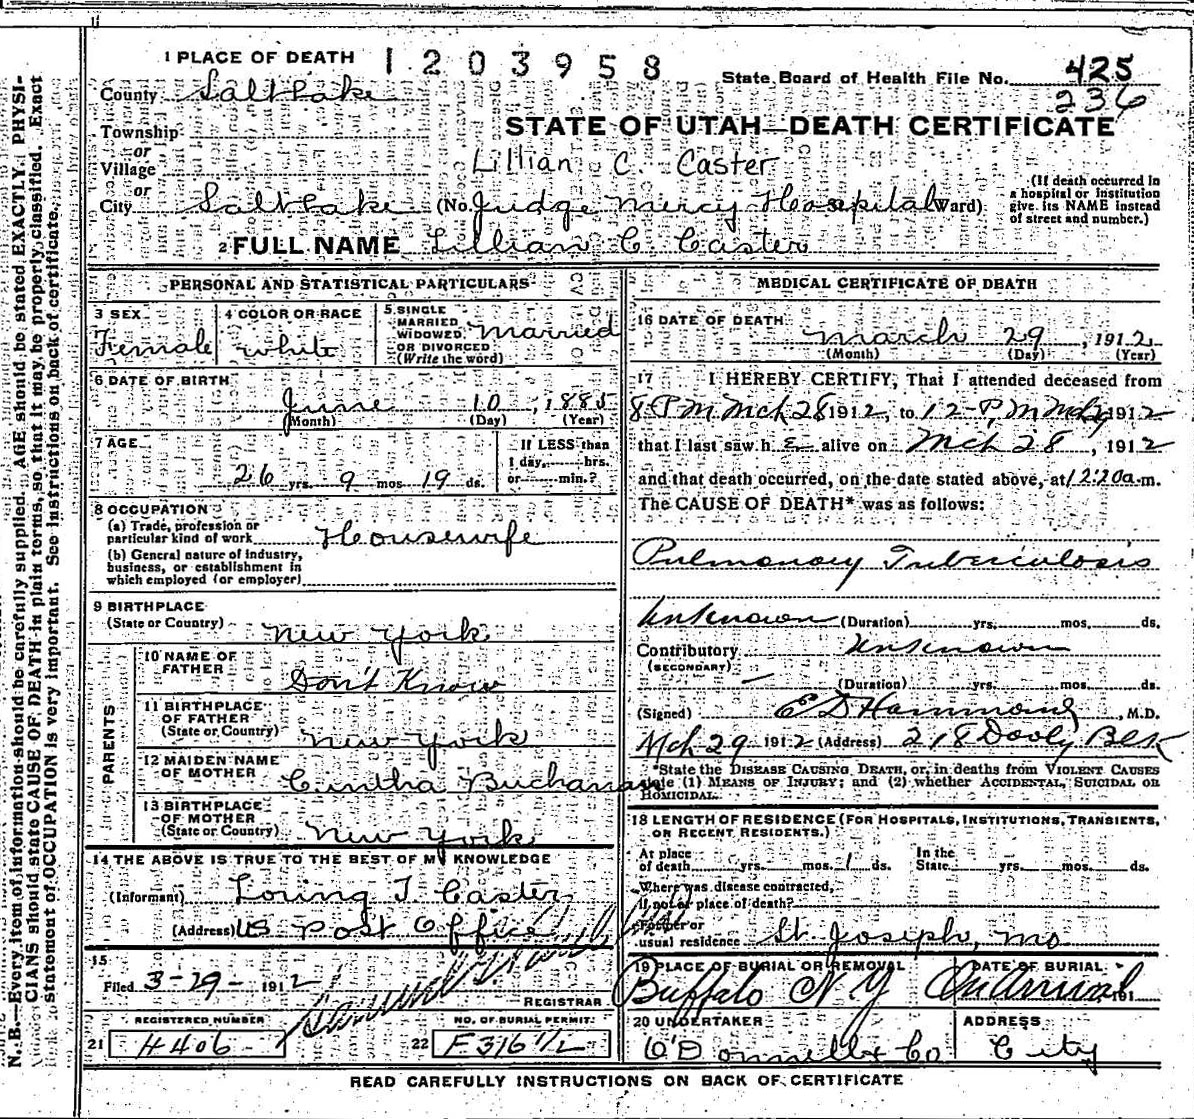 1 PLACE OF DEATH 1203958
State Board of Health File No. 425
236
County Salt Lake
STATE OF UTAH—DEATH CERTIFICATE
Township
or
Village
Lillian C. Caster
or
City Salt Lake (No. Judge Mercy Hospital Ward)
(If death occurred in a hospital or institution give its NAME instead of street and number.)
2 FULL NAME Lillian C. Caster
PERSONAL AND STATISTICAL PARTICULARS
3 SEX
Female
4 COLOR OR RACE
white
5 SINGLE
MARRIED
WIDOWED
OR DIVORCED
(Write the word)
Married
6 DATE OF BIRTH
June 10, 1885
(Month) (Day) (Year)
7 AGE
26 yrs. 9 mos 19 ds.
If LESS than
1 day, hrs.
or min.?
8 OCCUPATION
(a) Trade, profession or
particular kind of work Housewife
(b) General nature of industry,
business, or establishment in
which employed (or employer)
9 BIRTHPLACE
(State or Country) New York
PARENTS
10 NAME OF
FATHER Don't Know
11 BIRTHPLACE
OF FATHER
(State or Country) New York
12 MAIDEN NAME
OF MOTHER Cintha Buchanan
13 BIRTHPLACE
OF MOTHER
(State or Country) New York
14 THE ABOVE IS TRUE TO THE BEST OF MY KNOWLEDGE
(Informant) Loring T. Caster
(Address) US Post Office
15
Filed 3-29- 1912
REGISTRAR
REGISTERED NUMBER
21 H406
NO. OF BURIAL PERMIT:
22 F316 1/2
MEDICAL CERTIFICATE OF DEATH
16 DATE OF DEATH
March 29, 1912
(Month) (Day) (Year)
17 I HEREBY CERTIFY, That I attended deceased from
8 P M Mch 28 1912, to 12 P M 1912
that I last saw h alive on Mch 28, 1912
and that death occurred, on the date stated above, at 12:20 a.m.
The CAUSE OF DEATH* was as follows:
Pulmonary Tuberculosis
Unknown (Duration) yrs. mos. ds.
Contributory Unknown
(SECONDARY)
(Duration) yrs. mos. ds.
(Signed) E D Hammond, M.D.
Mch 29 1912 (Address) 218 Dooly Blk
*State the DISEASE CAUSING DEATH, or, in deaths from VIOLENT CAUSES
state (1) MEANS OF INJURY; and (2) whether ACCIDENTAL, SUICIDAL OR
HOMICIDAL.
18 LENGTH OF RESIDENCE (FOR HOSPITALS, INSTITUTIONS, TRANSIENTS,
OR RECENT RESIDENTS.)
At place
of death yrs. mos. 1 ds.
In the
State yrs. mos. ds.
Where was disease contracted,
if not at place of death?
Former or
usual residence St. Joseph, Mo
19 PLACE OF BURIAL OR REMOVAL
Buffalo N Y
DATE OF BURIAL
On Arrival 191
20 UNDERTAKER
O'Donnell & Co
ADDRESS
City
READ CAREFULLY INSTRUCTIONS ON BACK OF CERTIFICATE
N. B.—Every item of information should be carefully supplied. AGE should be stated EXACTLY. PHYSI-
CIANS should state CAUSE OF DEATH in plain terms, so that it may be properly classified. Exact
statement of OCCUPATION is very important. See instructions on back of certificate.